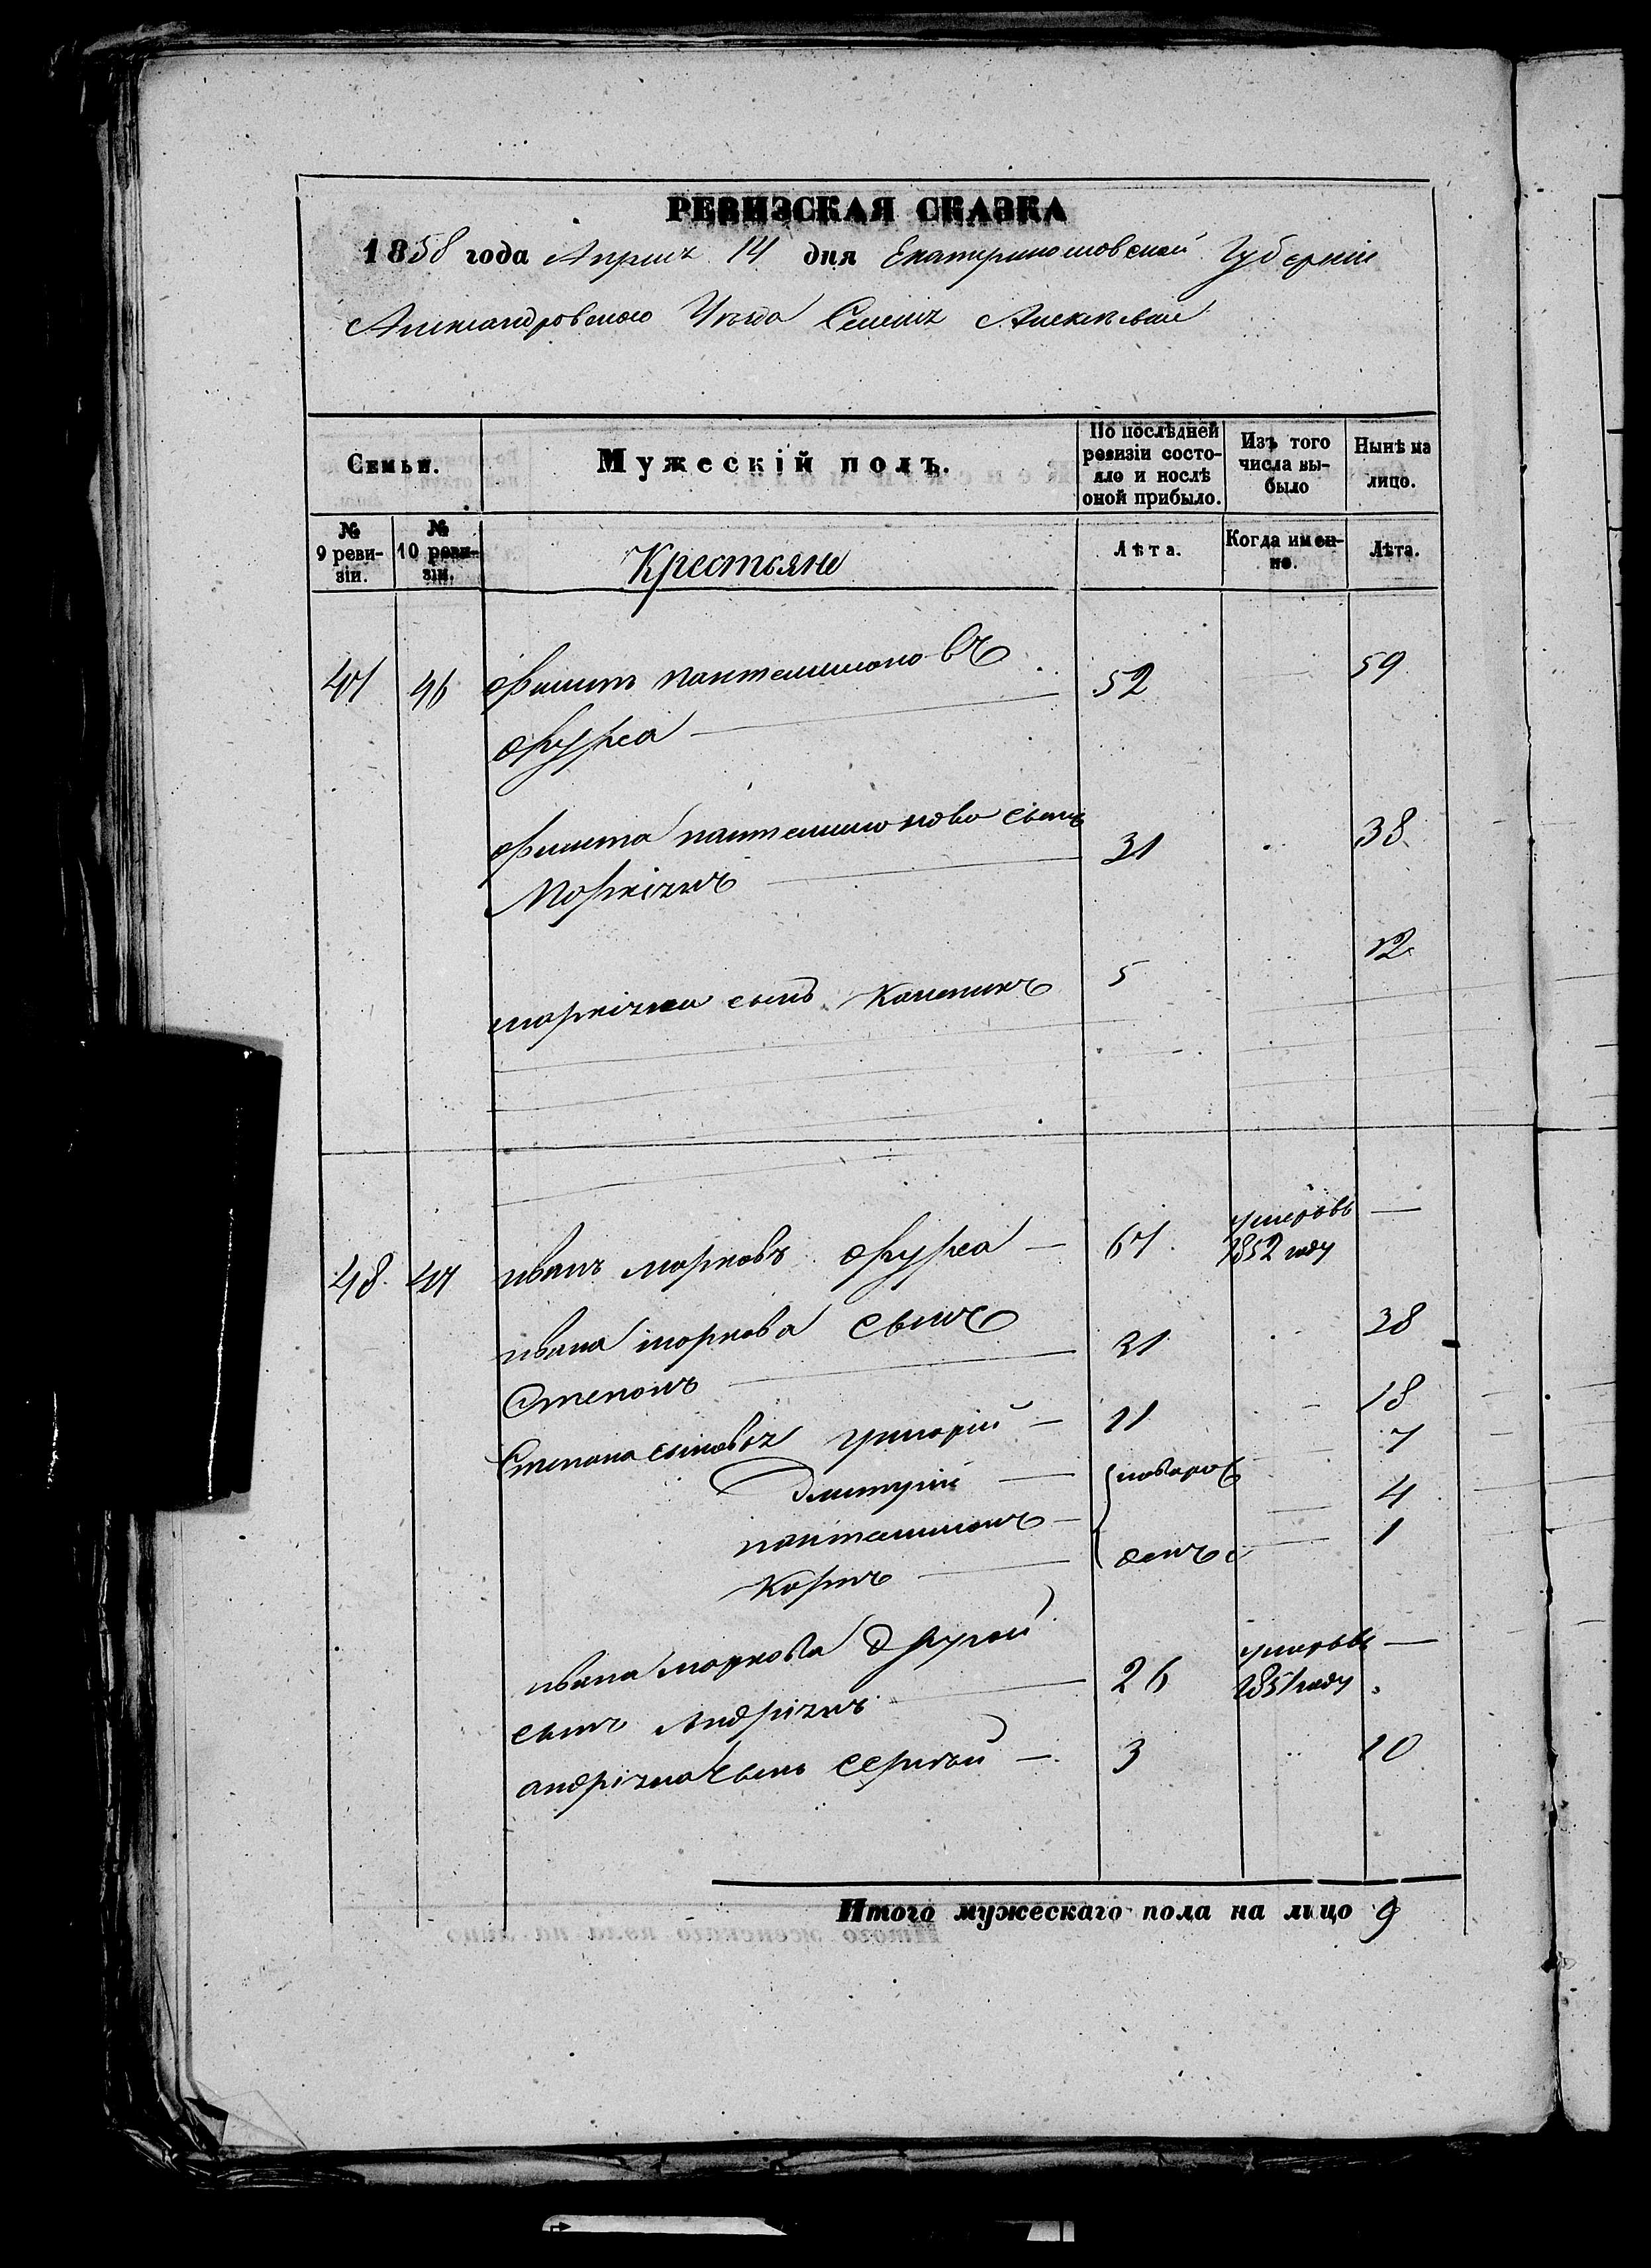 РЕВИЗСКАЯ СКАЗКА
1858 года Апреля 14 дня Екатеринославской Губерніи
Александровского Уѣзда Селенія Алексѣевки
Семьи.
Мужескій полъ.
По послѣдней ревизіи состояло и послѣ оной прибыло.
Изъ того числа выбыло
Нынѣ на лицо.
№ 9 ревизіи.
№ 10 ревизіи.
Крестьяне
Лѣта.
Когда именно.
Лѣта.
47 46 Филипъ пантелимоновъ 52 59
Фурса
Филипа пантелимонова сынъ 31 38
5 12
48 47 иванъ марковъ Фурса 67 умеръ въ 1852 году
ивана маркова сынъ 31 38
Степанъ
Степана сыновья григорій 11 18
Дмитрій 7
пантелимонъ 4
Карпъ 1
ивана маркова Другой 26 умеръ въ 1851 году
сынъ
сынъ Сергѣй 3 10
Итого мужескаго пола на лицо 9